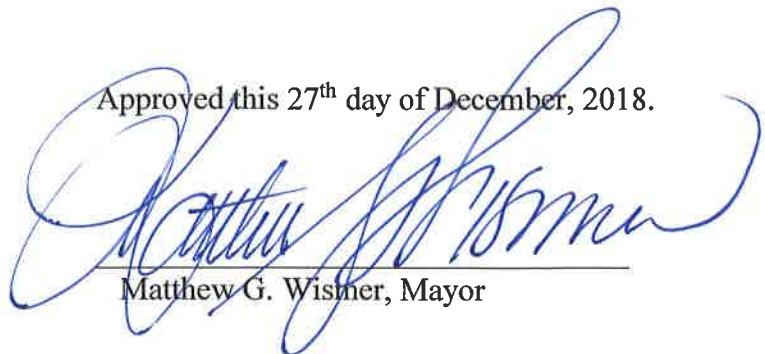 Approved this 27th day of December, 2018.
Matthew G. Wismer
Matthew G. Wismer, Mayor